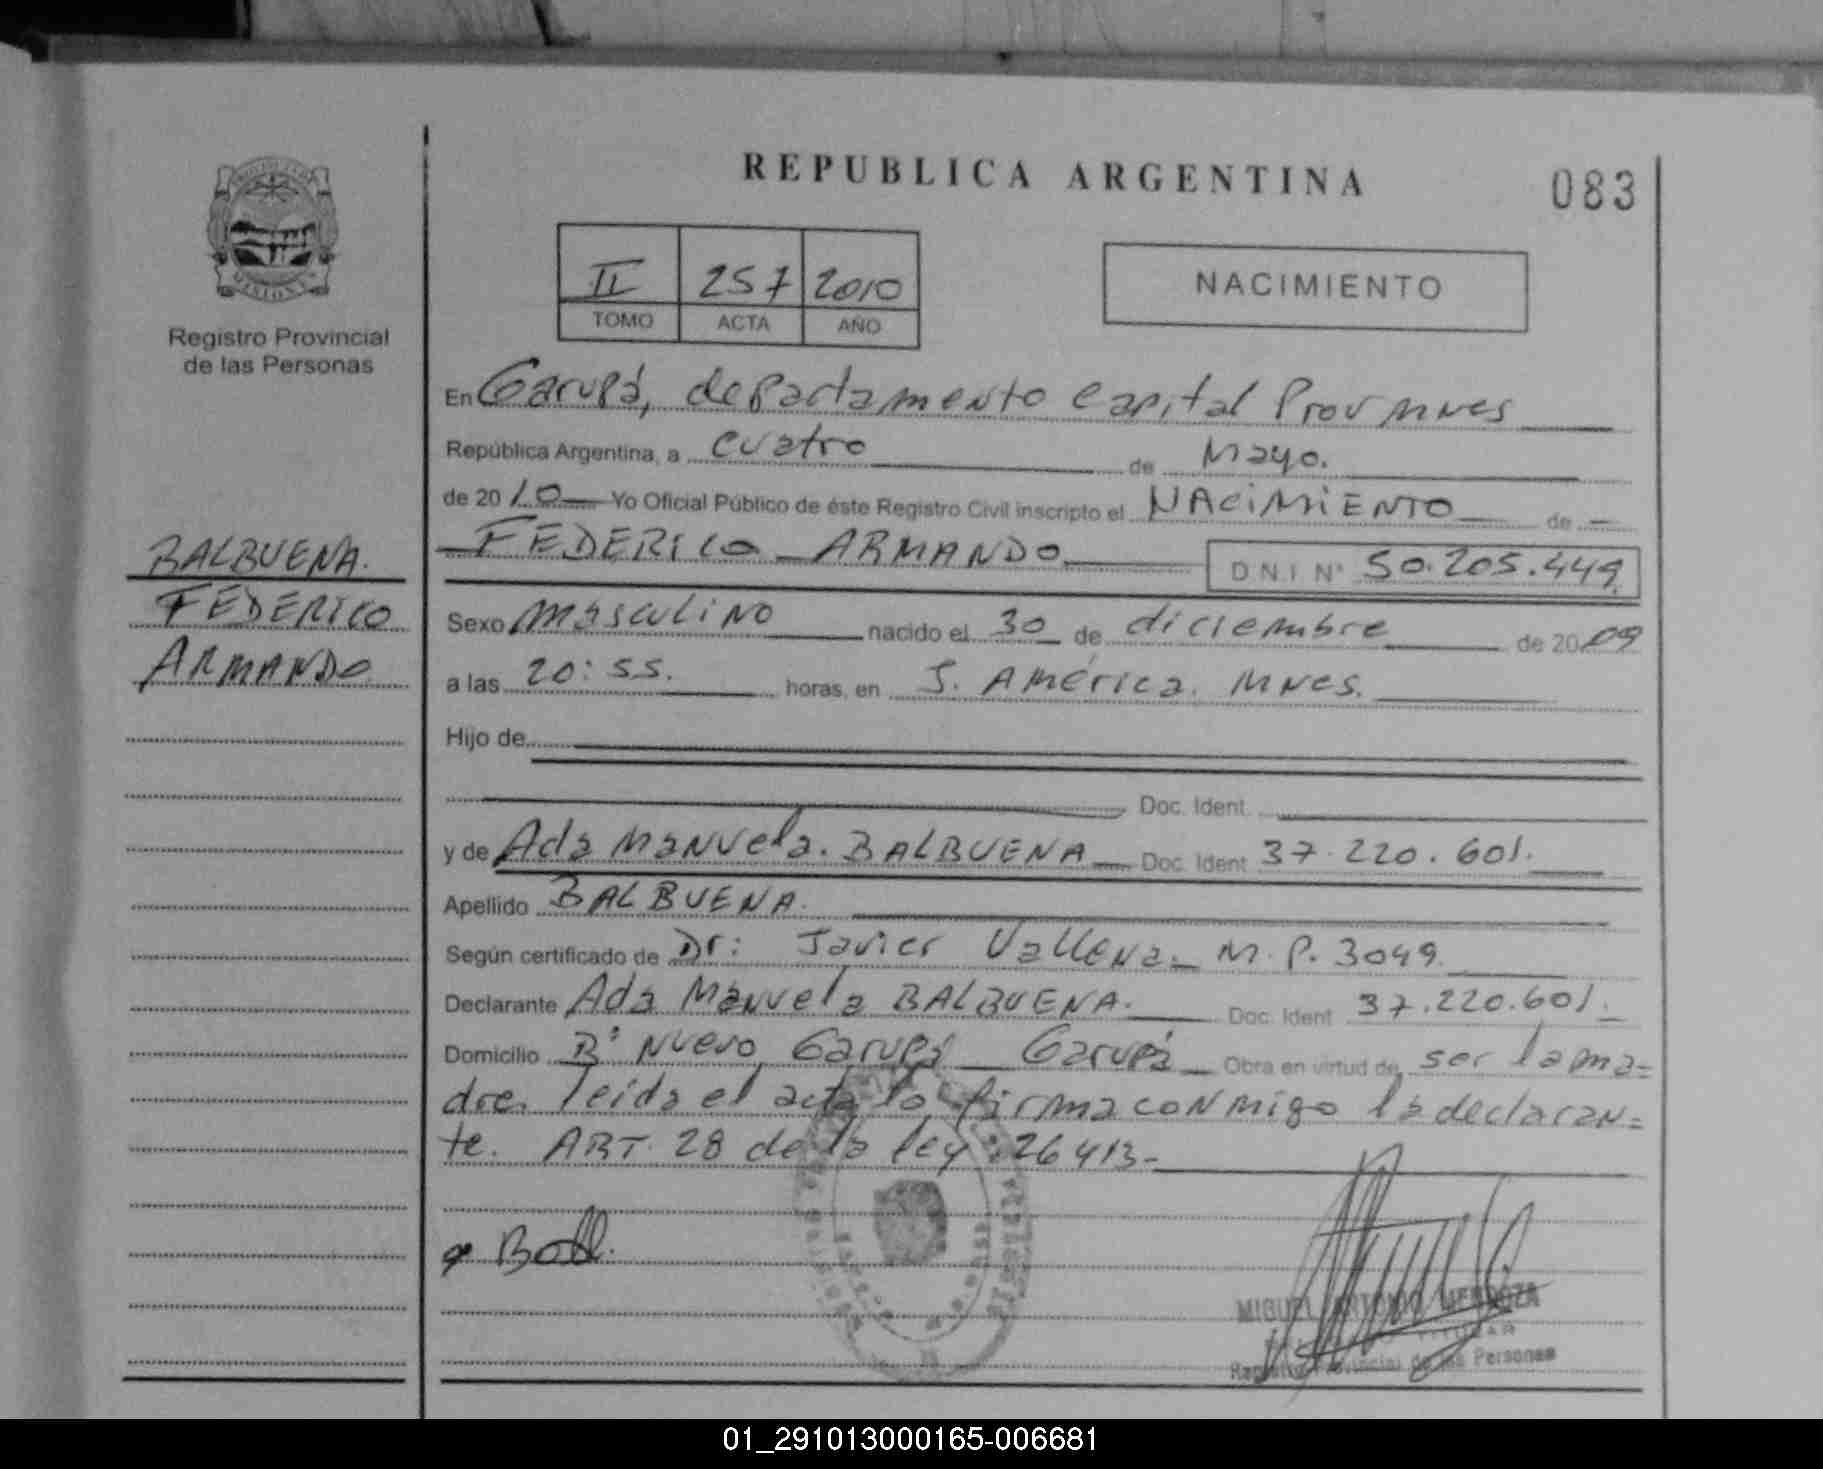 REPUBLICA ARGENTINA
083
II 257 2010
TOMO ACTA AÑO
NACIMIENTO
MISIONES
Registro Provincial
de las Personas
BALBUENA.
FEDERICO
ARMANDO
En Garupá, departamento Capital Prov Mnes
República Argentina, a cuatro de Mayo.
de 2010 Yo Oficial Público de éste Registro Civil inscripto el NACIMIENTO de
FEDERICO ARMANDO D.N.I N° 50.205.449
Sexo masculino nacido el 30 de diciembre de 2009
a las 20:55. horas, en J. América. Mnes.
Hijo de
Doc. Ident.
y de Ada Manuela. BALBUENA Doc. Ident 37.220.601.
Apellido BALBUENA.
Según certificado de Dr: Javier M.P. 3049.
Declarante Ada Manuela BALBUENA. Doc. Ident 37.220.601.
Domicilio B° Nuevo Garupá Garupá Obra en virtud de ser la ma=
dre. leída el acta lo firma conmigo la declaran=
te. ART. 28 de la ley : 26413-
MIGUEL ANTONIO MENDOZA
TITULAR
Registro Provincial de las Personas
01_291013000165-006681